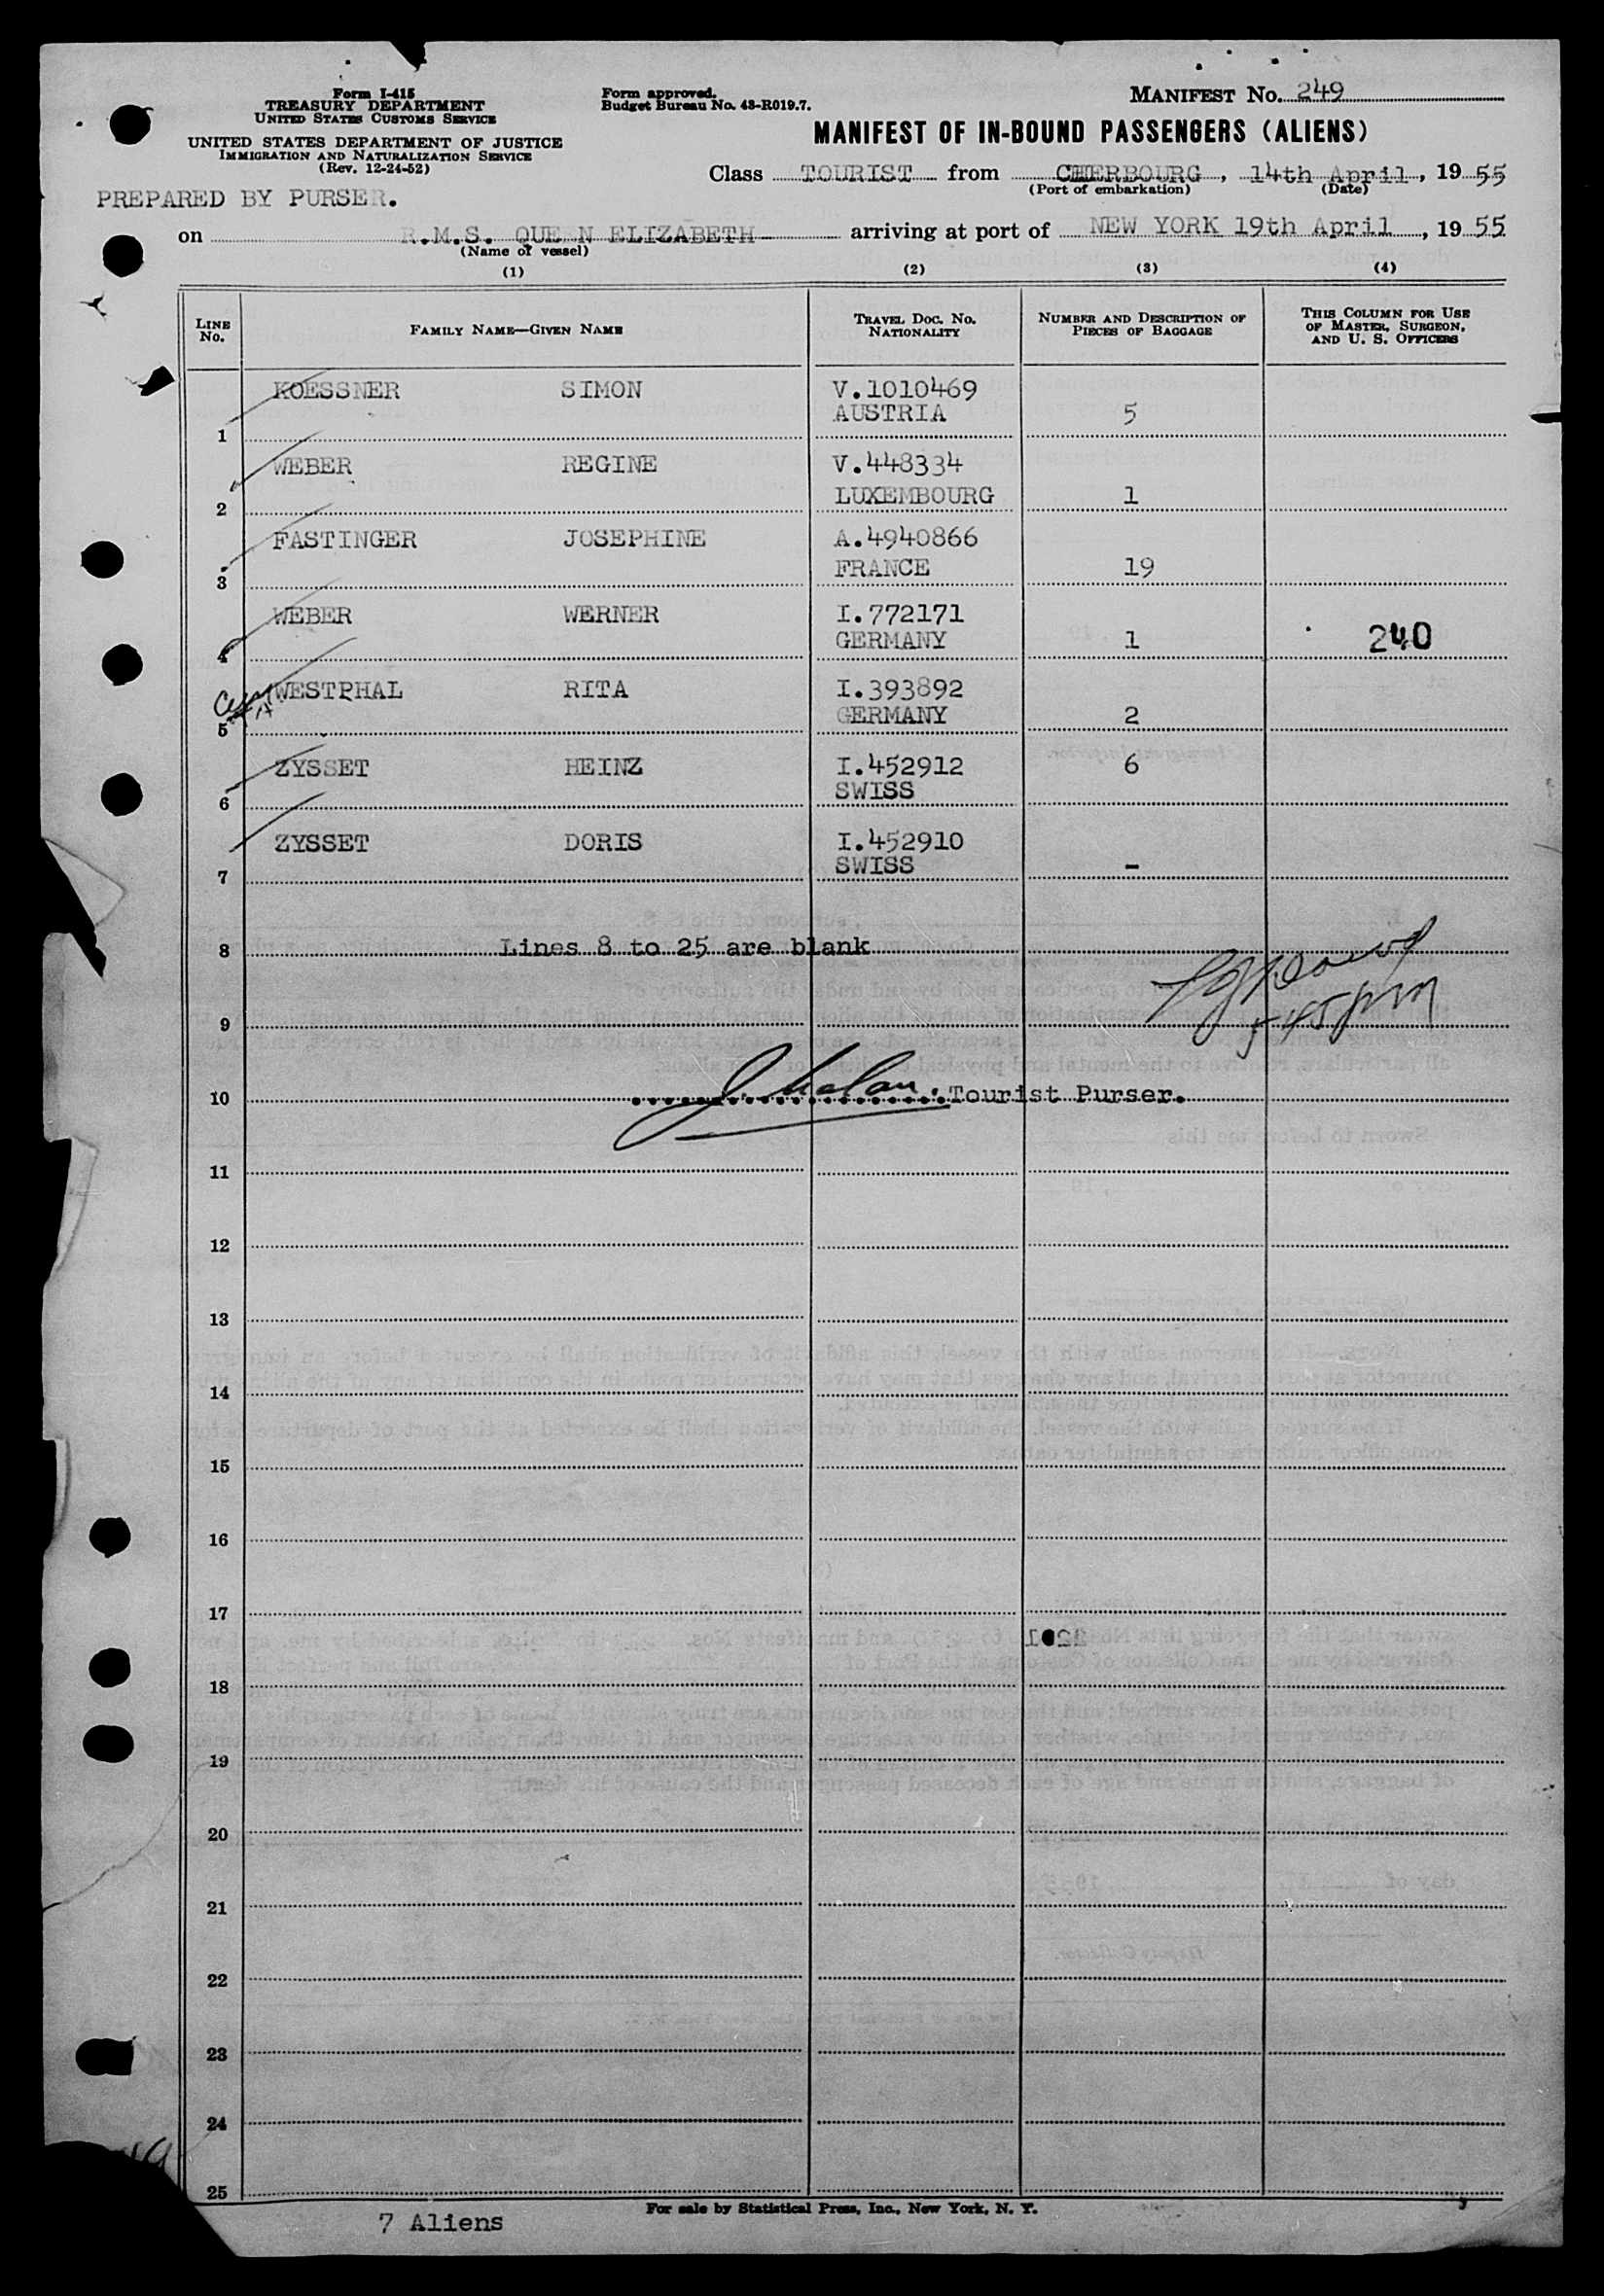 Form I-415
TREASURY DEPARTMENT
UNITED STATES CUSTOMS SERVICE
UNITED STATES DEPARTMENT OF JUSTICE
IMMIGRATION AND NATURALIZATION SERVICE
(Rev. 12-24-52)
Form approved.
Budget Bureau No. 43-R019.7.
MANIFEST No. 249
MANIFEST OF IN-BOUND PASSENGERS (ALIENS)
Class TOURIST from CHERBOURG, 14th April, 19 55
(Port of embarkation) (Date)
PREPARED BY PURSER.
on R.M.S. QUEEN ELIZABETH arriving at port of NEW YORK 19th April, 19 55
(Name of vessel)
(1) (2) (3) (4)
LINE No. FAMILY NAME—GIVEN NAME TRAVEL DOC. NO. NATIONALITY NUMBER AND DESCRIPTION OF PIECES OF BAGGAGE THIS COLUMN FOR USE OF MASTER, SURGEON, AND U. S. OFFICERS
KOESSNER SIMON V.1010469
1 AUSTRIA 5
WEBER REGINE V.448334
2 LUXEMBOURG 1
FASTINGER JOSEPHINE A.4940866
3 FRANCE 19
WEBER WERNER I.772171
4 GERMANY 1 240
WESTPHAL RITA I.393892
5 GERMANY 2
ZYSSET HEINZ I.452912 6
6 SWISS
ZYSSET DORIS I.452910
7 SWISS -
8 Lines 8 to 25 are blank
9 5 45 pm
10 Tourist Purser.
11
12
13
14
15
16
17
18
19
20
21
22
23
24
25
For sale by Statistical Press, Inc., New York, N. Y.
7 Aliens